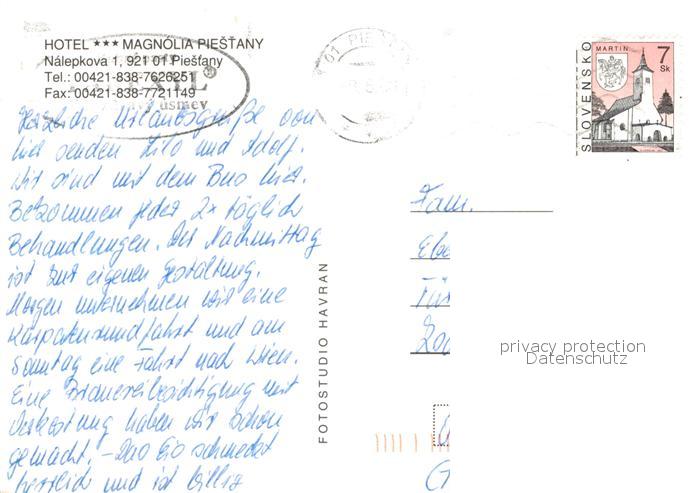 HOTEL *** MAGNÓLIA PIEŠŤANY
Nálepkova 1, 921 01 Piešťany
Tel.: 00421-838-7626251
Fax: 00421-838-7721149
úsmev
®
01 PIEŠ
SLOVENSKO
MARTIN
7
Sk
Herzliche Urlaubsgrüße von
hier senden Lilo und Adolf.
Wir sind mit dem Bus hier.
Bekommen jeder 2x täglich
Behandlungen. Der Nachmittag
ist zur eigenen Gestaltung.
Morgen unternehmen wir eine
Karpatenrundfahrt und am
Sonntag eine Fahrt nach Wien.
Eine Brauereibesichtigung mit
Verkostung haben wir schon
gemacht. – Das Eis schmeckt
herrlich und ist billig
FOTOSTUDIO HAVRAN
Fam.
Ebe
privacy protection
Datenschutz